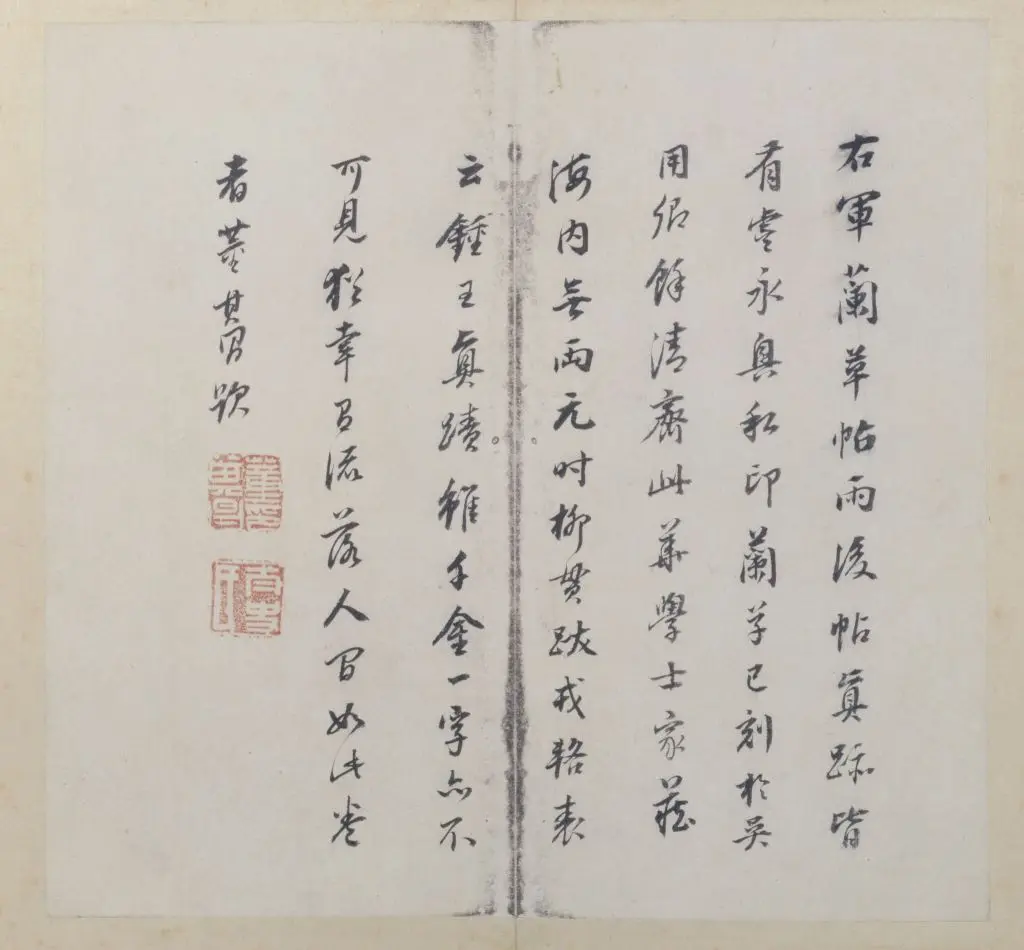 右軍蘭草帖雨後帖眞跡皆
有虞永興私印蘭草已刻於吳
用卿餘清齋此華學士家藏
海内無兩元时柳貫跋戎輅表
云鍾王眞蹟雖千金一字亦不
可見猶幸流落人間如此卷
者董其昌題